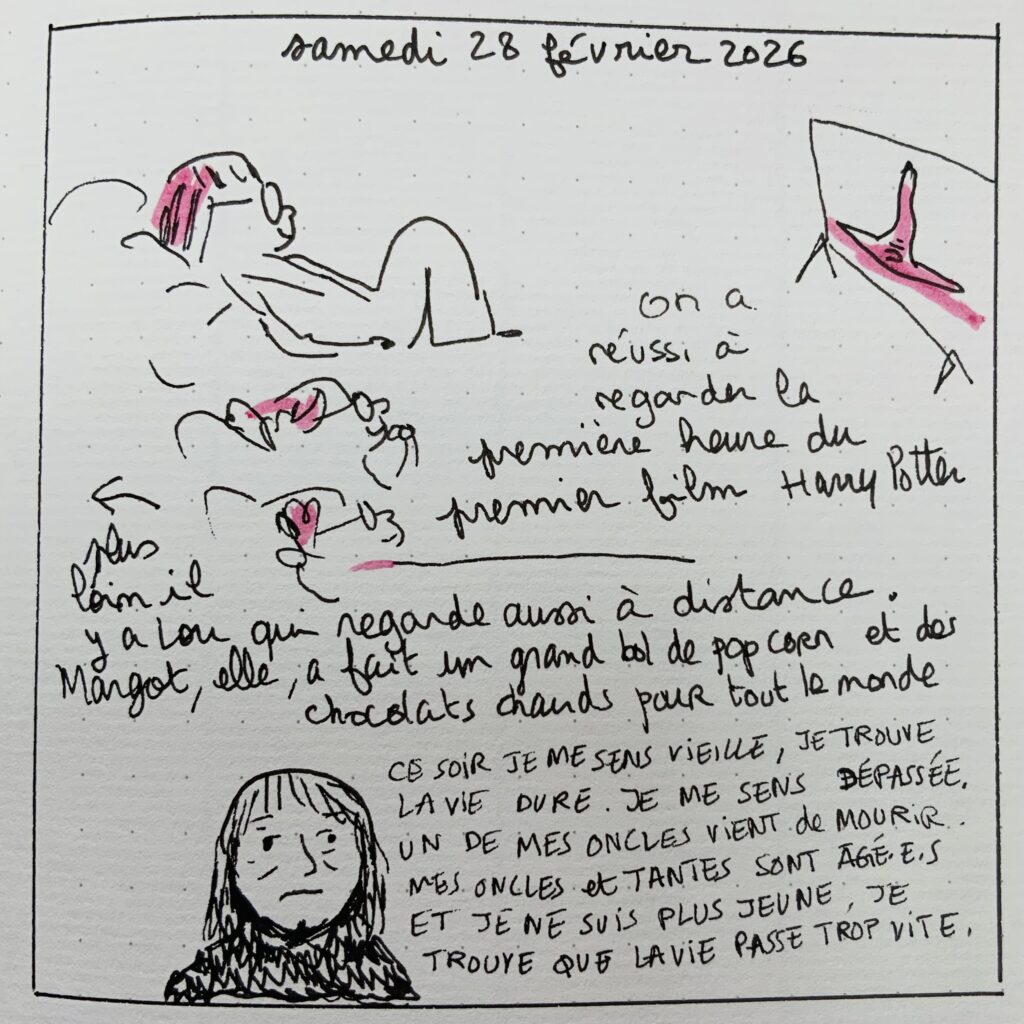 samedi 28 février 2026
on a
réussi à
regarder la
première heure du
premier film Harry Potter
plus
loin il
y a Lou qui regarde aussi à distance.
Margot, elle, a fait un grand bol de pop corn et des
chocolats chauds pour tout le monde
CE SOIR JE ME SENS VIEILLE, JE TROUVE
LA VIE DURE. JE ME SENS DÉPASSÉE.
UN DE MES ONCLES VIENT de MOURIR.
MES ONCLES et TANTES SONT ÂGÉ.E.S
ET JE NE SUIS PLUS JEUNE, JE
TROUVE QUE LA VIE PASSE TROP VITE.